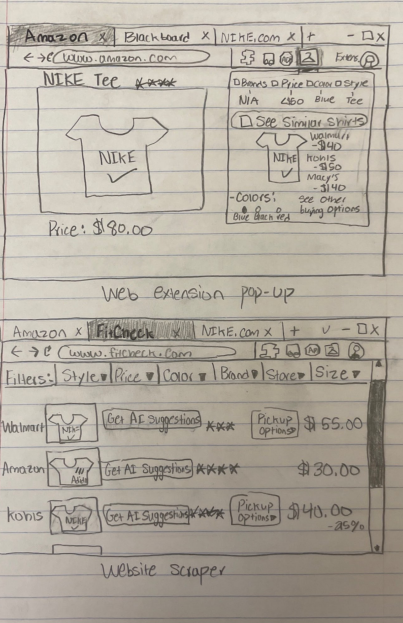 Amazon x Blackboard x NIKE.com x + - □ x
← → C www.amazon.com
NIKE Tee ****
NIKE
Price: $80.00
□ Brands □ Price □ Color □ Style
N/A <$60 Blue Tee
□ See Similar Shirts
NIKE
Walmart
-$40
Kohls
-$50
Macy's
-$140
-Colors:
Blue Black red
See other
buying options
Web extension pop-up
Amazon x FitCheck x NIKE.com x + v - □ x
← → C www.fitcheck.com
Filters: Style ▾ Price ▾ Color ▾ Brand ▾ Store ▾ Size ▾
Walmart NIKE Get AI Suggestions *** Pickup Options ▾ $55.00
Amazon Adidas Get AI Suggestions **** $30.00
Kohls NIKE Get AI Suggestions **** Pickup Options ▾ $40.00
-25%
Website scraper